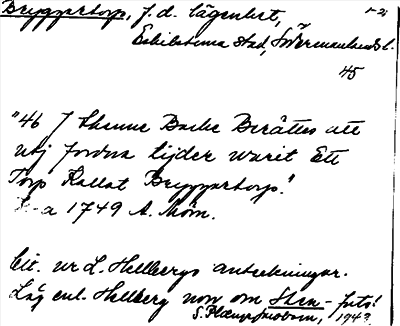 Bryggartorp, f. d. lägenhet, 1-2
Eskilstuna stad, Södermanlands l.
45
"46 I thenne Backe Berättes att
uthj fordna tijder warit Ett
Torp Kallat Bryggartorp."
a 1749 A. Mörn.
Cit. ur L. Hellbergs anteckningar.
Låg enl. Hellberg norr om Sten-
S. 194?